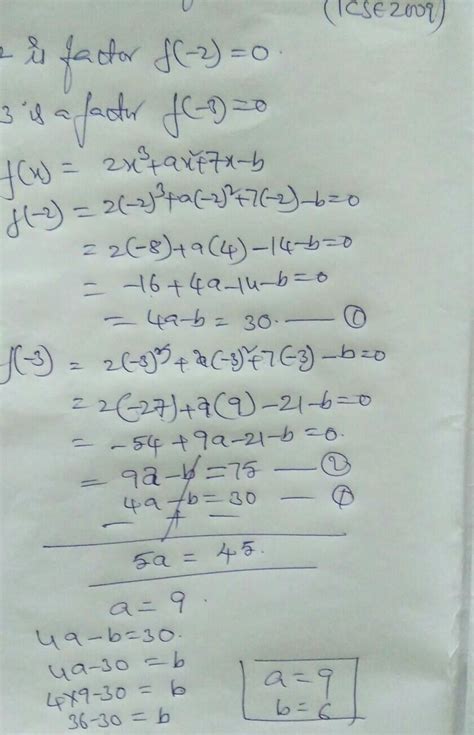 (ICSE2009)
2 is factor f(-2)=0.
3 is a factor f(-3)=0
f(x) = 2x³+ax²+7x-b
f(-2) = 2(-2)³+a(-2)²+7(-2)-b=0
= 2(-8)+a(4)-14-b=0
= -16+4a-14-b=0
= 4a-b = 30. — ①
f(-3) = 2(-3)³+a(-3)²+7(-3)-b=0
= 2(-27)+a(9)-21-b=0
= -54+9a-21-b=0.
= 9a-b=75 — ②
4a-b=30 — ①
- + -
5a = 45.
a = 9.
4a-b=30.
4a-30 = b
4×9-30 = b
36-30 = b
a=9
b=6